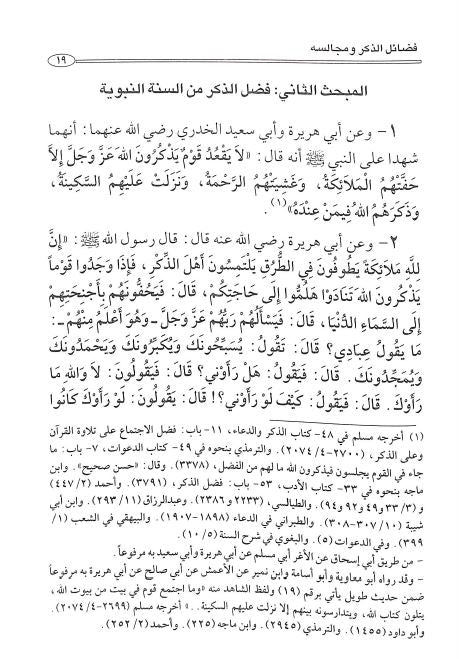 فضائل الذكر ومجالسه
١٩
المبحث الثاني: فضل الذكر من السنة النبوية
١ - وعن أبي هريرة وأبي سعيد الخدري رضي الله عنهما: أنهما
شهدا على النبي ﷺ أنه قال: «لاَ يَقْعُدُ قَوْمٌ يَذْكُرُونَ اللهَ عَزَّ وَجَلَّ إِلاَّ
حَفَّتْهُمُ الْمَلاَئِكَةُ، وَغَشِيَتْهُمُ الرَّحْمَةُ، وَنَزَلَتْ عَلَيْهِمُ السَّكِينَةُ،
وَذَكَرَهُمُ اللهُ فِيمَنْ عِنْدَهُ»(١).
٢ - وعن أبي هريرة رضي الله عنه قال: قال رسول الله ﷺ: «إِنَّ
لِلَّهِ مَلاَئِكَةً يَطُوفُونَ فِي الطُّرُقِ يَلْتَمِسُونَ أَهْلَ الذِّكْرِ، فَإِذَا وَجَدُوا قَوْماً
يَذْكُرُونَ اللهَ تَنَادَوْا هَلُمُّوا إِلَى حَاجَتِكُمْ، قَالَ: فَيَحُفُّونَهُمْ بِأَجْنِحَتِهِمْ
إِلَى السَّمَاءِ الدُّنْيَا، قَالَ: فَيَسْأَلُهُمْ رَبُّهُمْ عَزَّ وَجَلَّ -وَهوَ أَعْلَمُ مِنْهُمْ-:
مَا يَقُولُ عِبَادِي؟ قَالَ: تَقُولُ: يُسَبِّحُونَكَ وَيُكَبِّرُونَكَ وَيَحْمَدُونَكَ
وَيُمَجِّدُونَكَ. قَالَ: فَيَقُولُ: هَلْ رَأَوْنِي؟ قَالَ: فَيَقُولُونَ: لاَ وَاللهِ مَا
رَأَوْكَ. قَالَ: فَيَقُولُ: كَيْفَ لَوْ رَأَوْنِي؟! قَالَ: يَقُولُونَ: لَوْ رَأَوْكَ كَانُوا
(١) أخرجه مسلم في ٤٨- كتاب الذكر والدعاء، ١١- باب: فضل الاجتماع على تلاوة القرآن
وعلى الذكر، (٢٧٠٠-٢٠٧٤/٤). والترمذي بنحوه في ٤٩- كتاب الدعوات، ٧- باب: ما
جاء في القوم يجلسون فيذكرون الله ما لهم من الفضل، (٣٣٧٨). وقال: «حسن صحيح». وابن
ماجه بنحوه في ٣٣- كتاب الأدب، ٥٣- باب: فضل الذكر، (٣٧٩١). وأحمد (٤٤٧/٢)
و(٣٣/٣ و٤٩ و٩٢ و٩٤). والطيالسي، (٢٢٣٣ و٢٣٨٦). وعبدالرزاق (٢٩٣/١١). وابن أبي
شيبة (٣٠٧/١٠-٣٠٨). والطبراني في الدعاء (١٨٩٨-١٩٠٧). والبيهقي في الشعب (١/
٣٩٩). وفي الدعوات (٥). والبغوي في شرح السنة (١٠/٥).
- من طريق أبي إسحاق عن الأغر أبي مسلم عن أبي هريرة وأبي سعيد به مرفوعاً.
- وقد رواه أبو معاوية وأبو أسامة وابن نمير عن الأعمش عن أبي صالح عن أبي هريرة به مرفوعاً
ضمن حديث طويل يأتي برقم (١٩) ولفظ الشاهد منه «وما اجتمع قوم في بيت من بيوت الله،
يتلون كتاب الله، ويتدارسونه بينهم إلا نزلت عليهم السكينة..» أخرجه مسلم (٢٦٩٩-٢٠٧٤/٤).
وأبو داود (١٤٥٥). والترمذي (٢٩٤٥). وابن ماجه (٢٢٥). وأحمد(٢٥٢/٢).